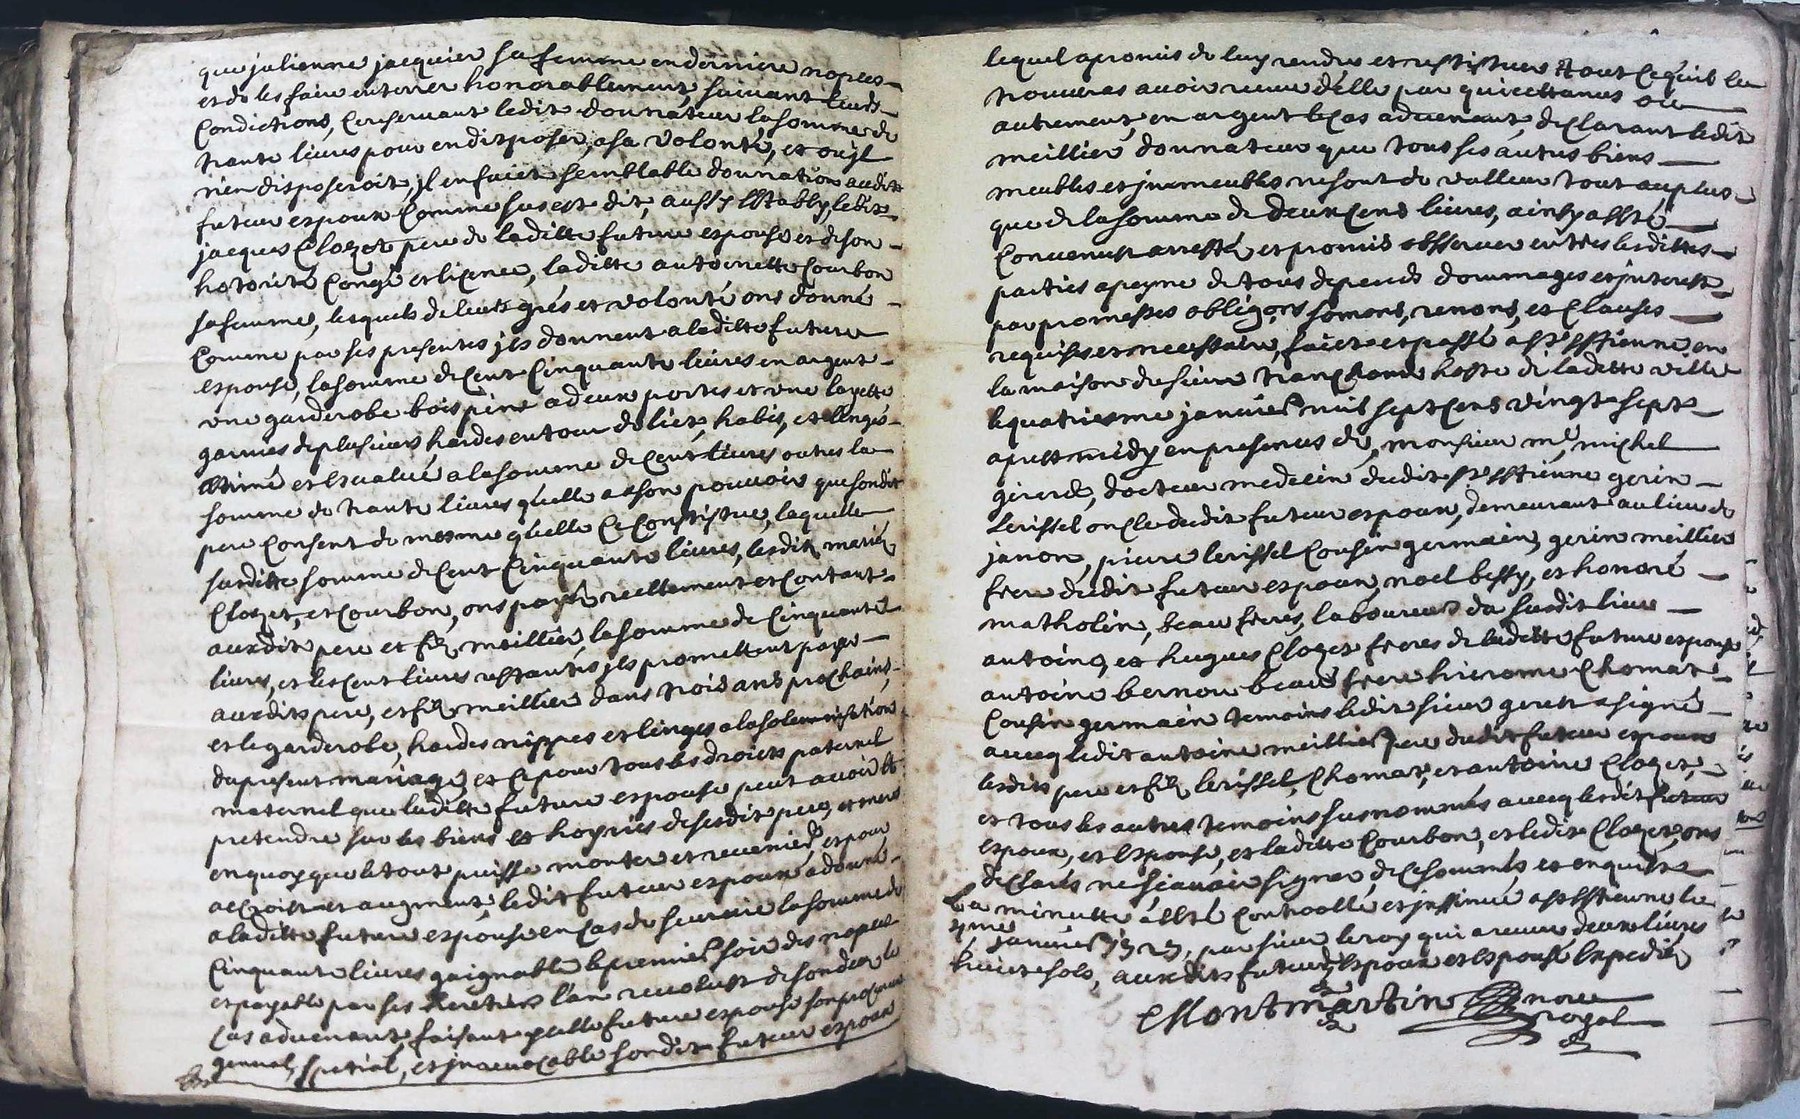 que julienne jacquier sa femme en derniere nopces
et de les faire enterrer honorablement suivant leurs
Condictions, Ce reservant ledit donnateur la somme de
trante livres pour en disposer, a sa volonté, et ou jl
n'en disposeroit, jl en faict semblable donnation audit
futeur espoux Comme sus est dit, aussy Estably, ledit
jacques Clozet pere de laditte future espouse et de son
hotorité Congé et licence, laditte antoinette Courbon
sa femme, lesquels de leurs grés et volonté ons donné
Comme par ses presentes jls donnent a laditte future
espouse, la somme de Cent Cinquante livres en argent
une garderobe bois pin a deux portes et une layette
garnies de plusieurs hardes entour de lict, habis, et linges
estimé et Evalué a la somme de Cent livres outres la
somme de trante livres qu'elle a a son pouvoir que sondit
pere Consent de mesme qu'elle Ce Constistue, laquelle
susditte somme de Cent Cinquante livres, lesdits mariés
Clozet, et Courbon, ons payé reellement et Contant
auxdit pere et fils meillier, la somme de Cinquante
livres, et les Cent livres restantes jls promettent payer
auxdits pere, et fils meillier dans trois ans prochains,
et le garderobe, hardes nippes et linges a la solemnisation
du present mariage, et Ce pour tous les droicts paternel
maternel que laditte future espouse peut avoir et
pretendre sur les biens et hoyries de sesdit pere, et mere
en quoy que le tout puisse monter et revenir et pour
accroist et augment, ledit futeur espoux a donné
a laditte future espouse en Cas de survie la somme de
Cinquante livres gaignable le premier soir des nopces
et payable par ses heretiers l'an revolust de son deces le
Cas advenant faisant yCelle future espouse son procureur
general, spetial, et jrrevocable sondit futeur espoux
lequel a promis de luy rendre et restistuer tout Ce qu'il Ce
trouveras avoir reçeu d'elle par quicettances ou
autrement, en argent le Cas advenant, declarant ledit
meillier donnateur que tous ses autres biens
meubles et jmmeubles ne sont de valleur tout au plus
que de la somme de deux Cens livres, ainsy a esté
Convenust arresté, et promis observer entres lesdittes
parties a peyne de tous depends dommages et jnterest
par promesses obligons, somons, renons, et Clauses
requises et necessaire, faict et passé a St Estienne en
la maison du sieur hoste de laditte ville
le quatriesme janvier mil sept Cens vingt sept
apres midy en presences de, monsieur me michel
girerd, docteur medecin dudit St Estienne gerin
Lerissel oncle dudit futeur espoux, demeurant au lieu de
janon, pierre lerissel Cousin germain, gerin meillier
frere dudit futeur espoux, noel bessy, et honoré
matholin, beau freres, laboureurs du susdit lieu
antoine, et hugues Clozet freres de laditte future espouse
antoine bernou beau frere hierome Chomat
Cousin germain temoins ledit sieur a signé
avecq ledit antoine meillier pere dudit futeur espoux
lesdits pere et fils lerissel, Chomat, et antoine Clozet,
et tous les autres temoins susnommés avecq lesdit futeur
espoux, et Espouse, et laditte Courbon, et ledit Clozet, ons
declarés ne sçavoir signer, de Ce sommés et enquis
La minutte a Esté Controollé et jnssinué a St Estienne le
janvier 1727, par sieur leroy qui a reçeu deux livres
huict sols, auxdits futeurs Espoux et Espouse Expedié
Montmartin nore
royal